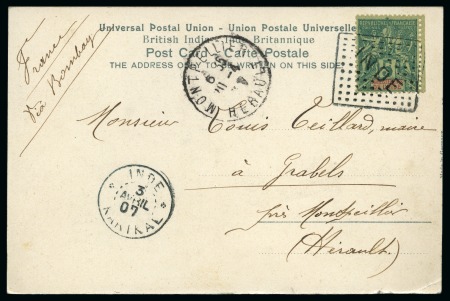 Universal Postal Union - Union Postale Universelle
British India Britannique
Post Card - Carte Postale
THE ADDRESS ONLY TO BE WRITTEN ON THIS SIDE
France
Via Bombay
MONTPELLIER
HERAULT
INDE
Monsieur Louis Teillard, maire
à Grabels
près Montpellier
(Hérault)
INDE
3
AVRIL
07
KARIKAL